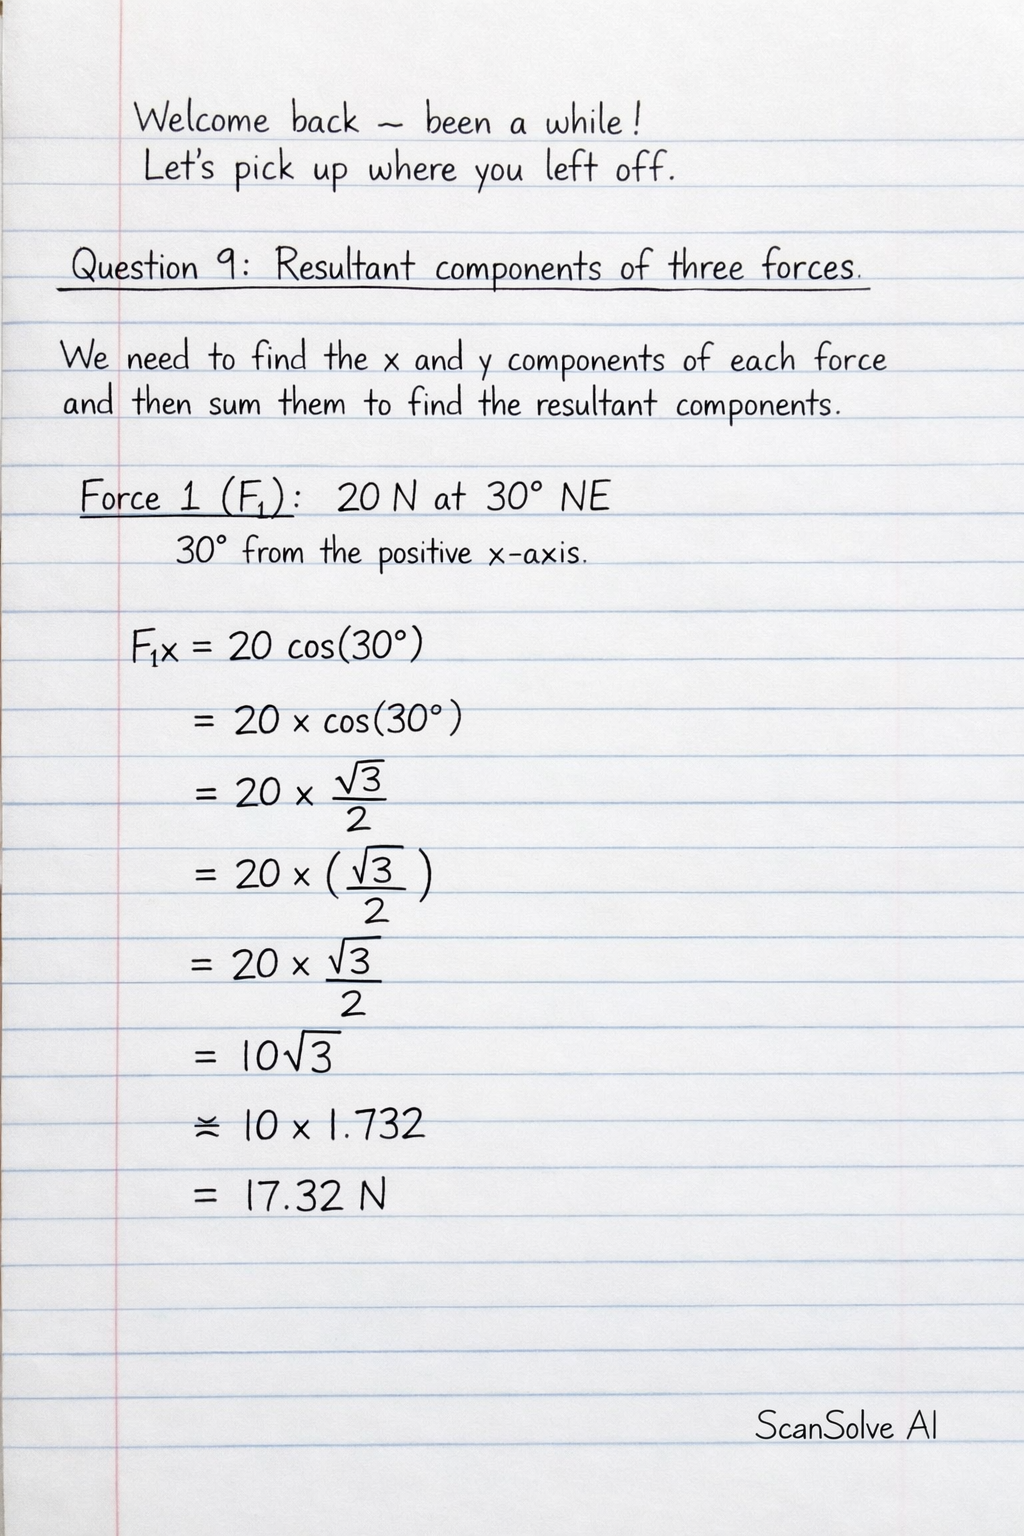 Welcome back – been a while!
Let's pick up where you left off.
Question 9: Resultant components of three forces.
We need to find the x and y components of each force
and then sum them to find the resultant components.
Force 1 (F₁): 20 N at 30° NE
30° from the positive x-axis.
F₁x = 20 cos(30°)
= 20 × cos(30°)
= 20 × √3/2
= 20 × (√3/2)
= 20 × √3/2
= 10√3
≍ 10 × 1.732
= 17.32 N
ScanSolve AI